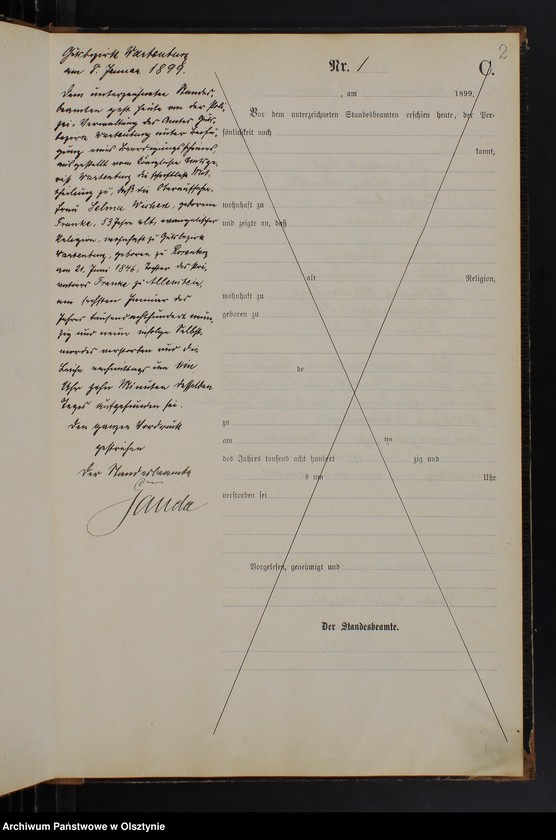 2
Gutsbezirk Wartenburg
am 8. Januar 1899.
Dem unterzeichneten Standes-
beamten geht heute von der Poli-
zei-Verwaltung des Amtes Guts-
bezirk Wartenburg unter Beifü-
gung eines Beerdigungsscheines
ausgestellt vom Königlichen Amtsge-
richt Wartenburg die schriftliche Mit-
theilung zu, daß die Oberaufseher-
frau Selma geborene
Franke, 53 Jahre alt, evangelischer
Religion, wohnhaft zu Gutsbezirk
Wartenburg, geboren zu Rosenberg
am 21. Juni 1846, Tochter des
Franke zu Allenstein,
am sechsten Januar des
Jahres tausendachthundert neun-
zig und neun infolge Selbst-
mordes verstorben und die
Leiche nachmittags um ein
Uhr zehn Minuten desselben
Tages aufgefunden sei.
Den ganzen Vordruck
gestrichen
Der Standesbeamte
Janda
Nr. 1 C.
, am 1899,
Vor dem unterzeichneten Standesbeamten erschien heute, der Per-
sönlichkeit nach
kannt,
wohnhaft zu
und zeigte an, daß
alt Religion,
wohnhaft zu
geboren zu
de
zu
am ten
des Jahres tausend acht hundert zig und
s um Uhr
verstorben sei
Vorgelesen, genehmigt und
Der Standesbeamte.
Archiwum Państwowe w Olsztynie